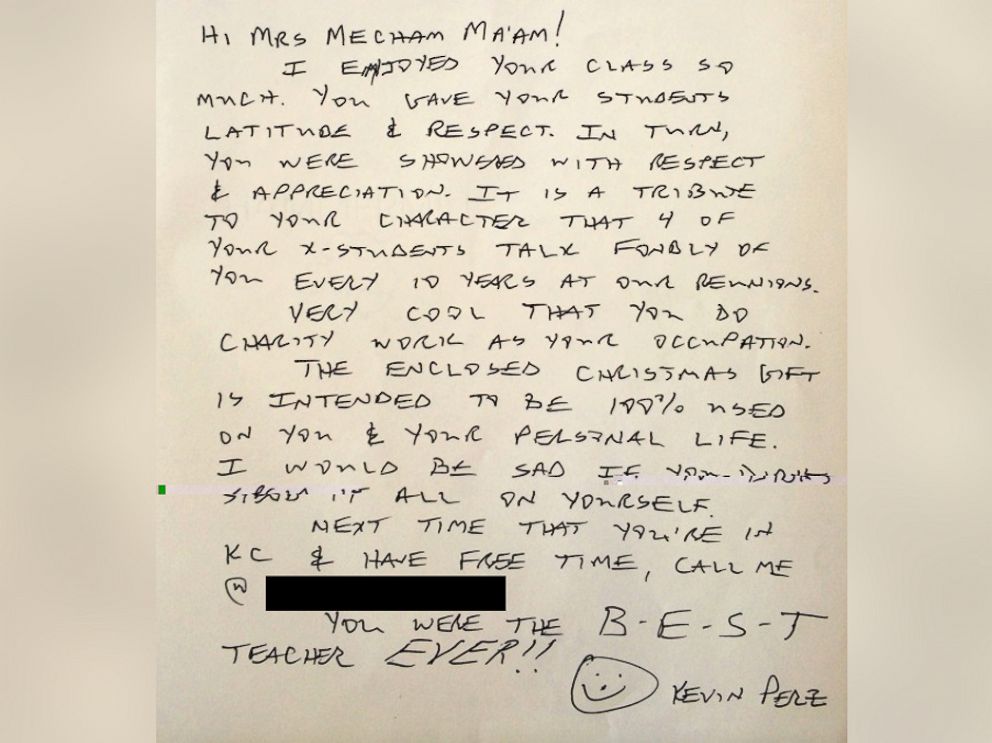 HI MRS MECHAM MA'AM!
I ENJOYED YOUR CLASS SO
MUCH. YOU GAVE YOUR STUDENTS
LATITUDE & RESPECT. IN TURN,
YOU WERE SHOWERED WITH RESPECT
& APPRECIATION. IT IS A TRIBUTE
TO YOUR CHARACTER THAT 4 OF
YOUR X-STUDENTS TALK FONDLY OF
YOU EVERY 10 YEARS AT OUR REUNIONS.
VERY COOL THAT YOU DO
CHARITY WORK AS YOUR OCCUPATION.
THE ENCLOSED CHRISTMAS GIFT
IS INTENDED TO BE 100% USED
ON YOU & YOUR PERSONAL LIFE.
I WOULD BE SAD IF YOU
ALL ON YOURSELF.
NEXT TIME THAT YOU'RE IN
KC & HAVE FREE TIME, CALL ME
@
YOU WERE THE B-E-S-T
TEACHER EVER!!
KEVIN PERZ